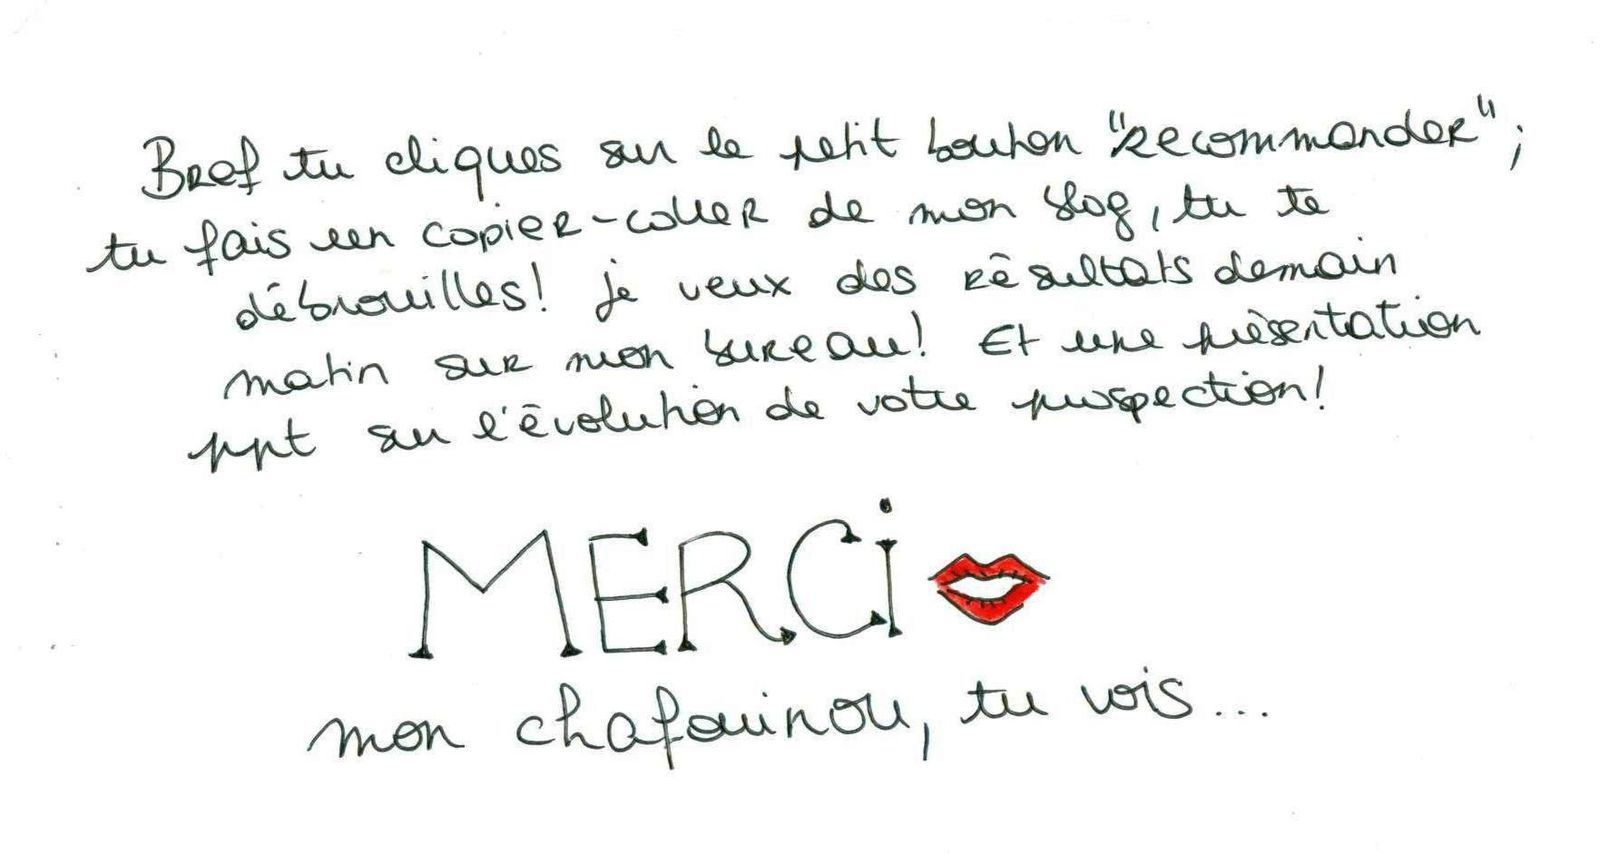 Bref tu cliques sur le petit bouton "Recommander";
tu fais un copier-coller de mon blog, tu te
débrouilles! je veux des résultats demain
matin sur mon bureau! Et une présentation
ppt sur l'évolution de votre prospection!
MERCi
mon chafouinou, tu vois...